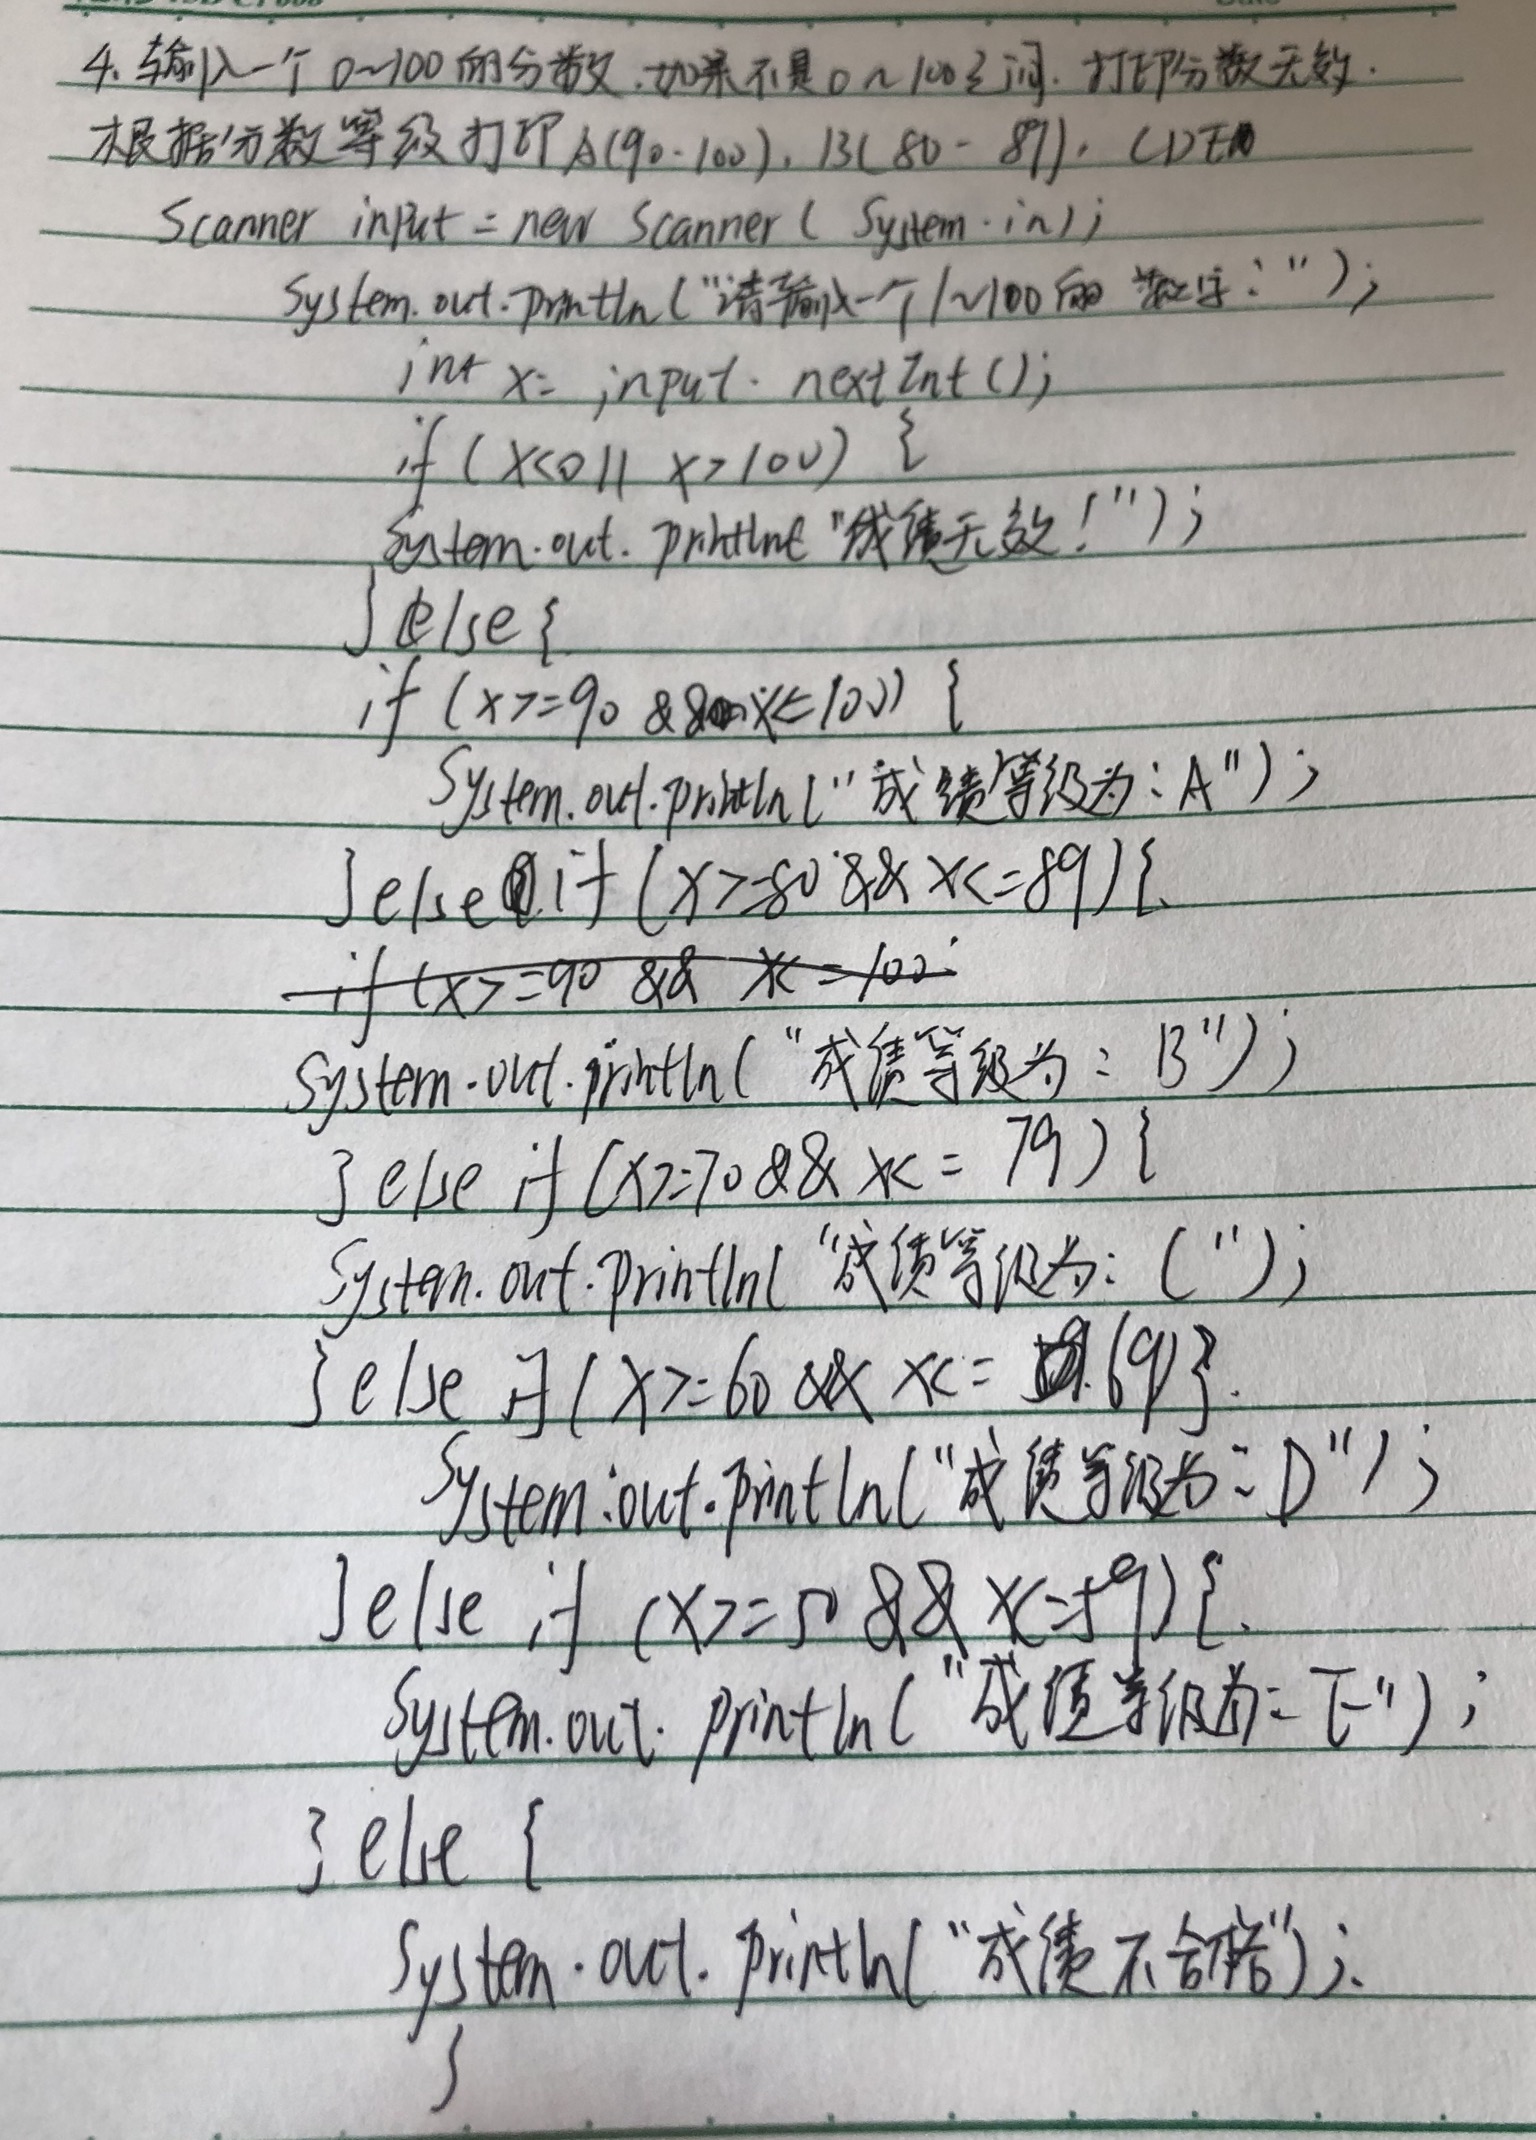 4. 输入一个0~100的分数,如果不是0~100之间.打印分数无效.
根据分数等级打印A(90-100), B(80-89), CDE
Scanner input = new Scanner( System.in);
System.out.println("请输入一个1~100的数字:");
int x= input.nextInt();
if (x<0|| x>100) {
System.out.println( "成绩无效!");
}else{
if (x>=90 && x<=100) {
System.out.println("成绩等级为:A");
}else if (x>=80 && x<=89){
if (x>=90 && x<=100
System.out.println("成绩等级为: B");
}else if (x>=70 && x<= 79) {
System.out.println( "成绩等级为: C");
}else if (x>=60 && x<= 69)}
System.out.println("成绩等级为:D");
}else if (x>=50 && x<=59){
System.out.println( "成绩等级为: E");
}else {
System.out.println("成绩不合格");
}